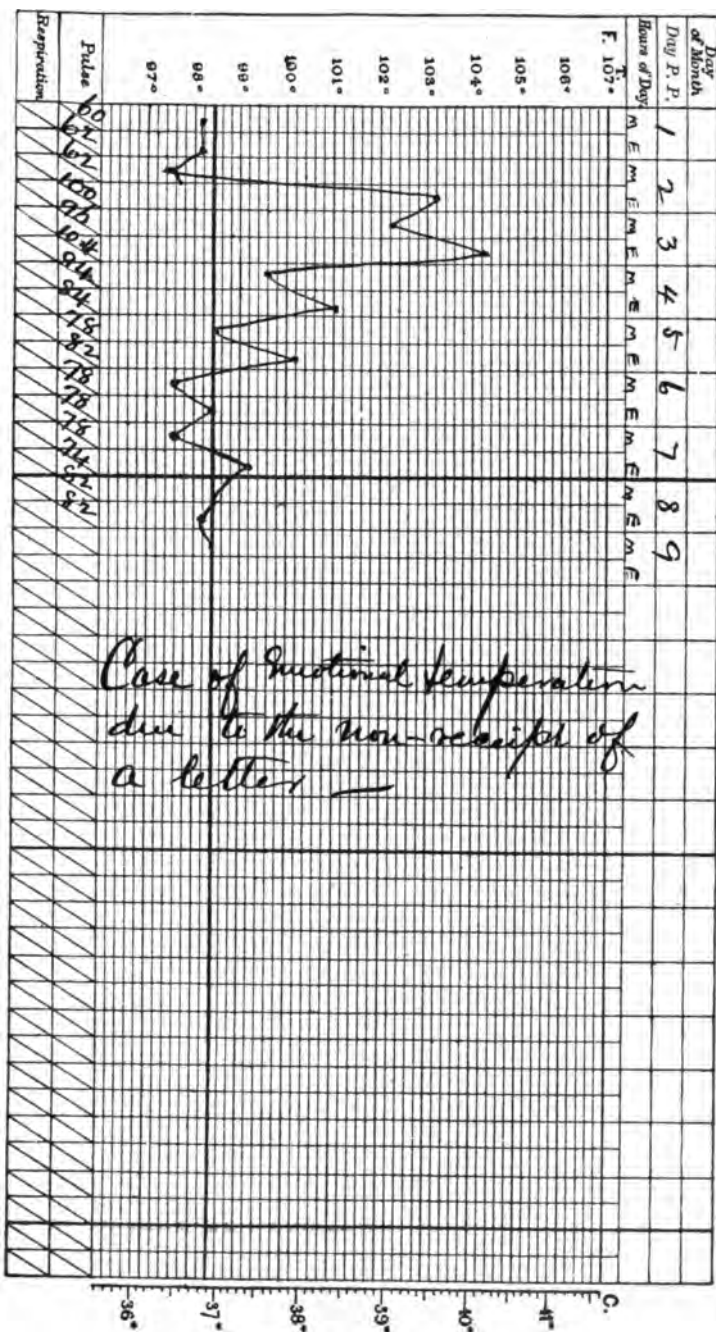 Day of Month
Day P. P. 1 2 3 4 5 6 7 8 9
Hours of Day. M E M E M E M E M E M E M E M E M E
T.
F. 107°
106°
105°
104°
103°
102°
101°
100°
99°
98°
97°
Pulse 60 62 62 100 96 104 94 84 78 82 78 78 78 74 82 82
Respiration
C.
41°
40°
39°
38°
37°
36°
Case of Emotional temperation
due to the non-receipt of
a letter —